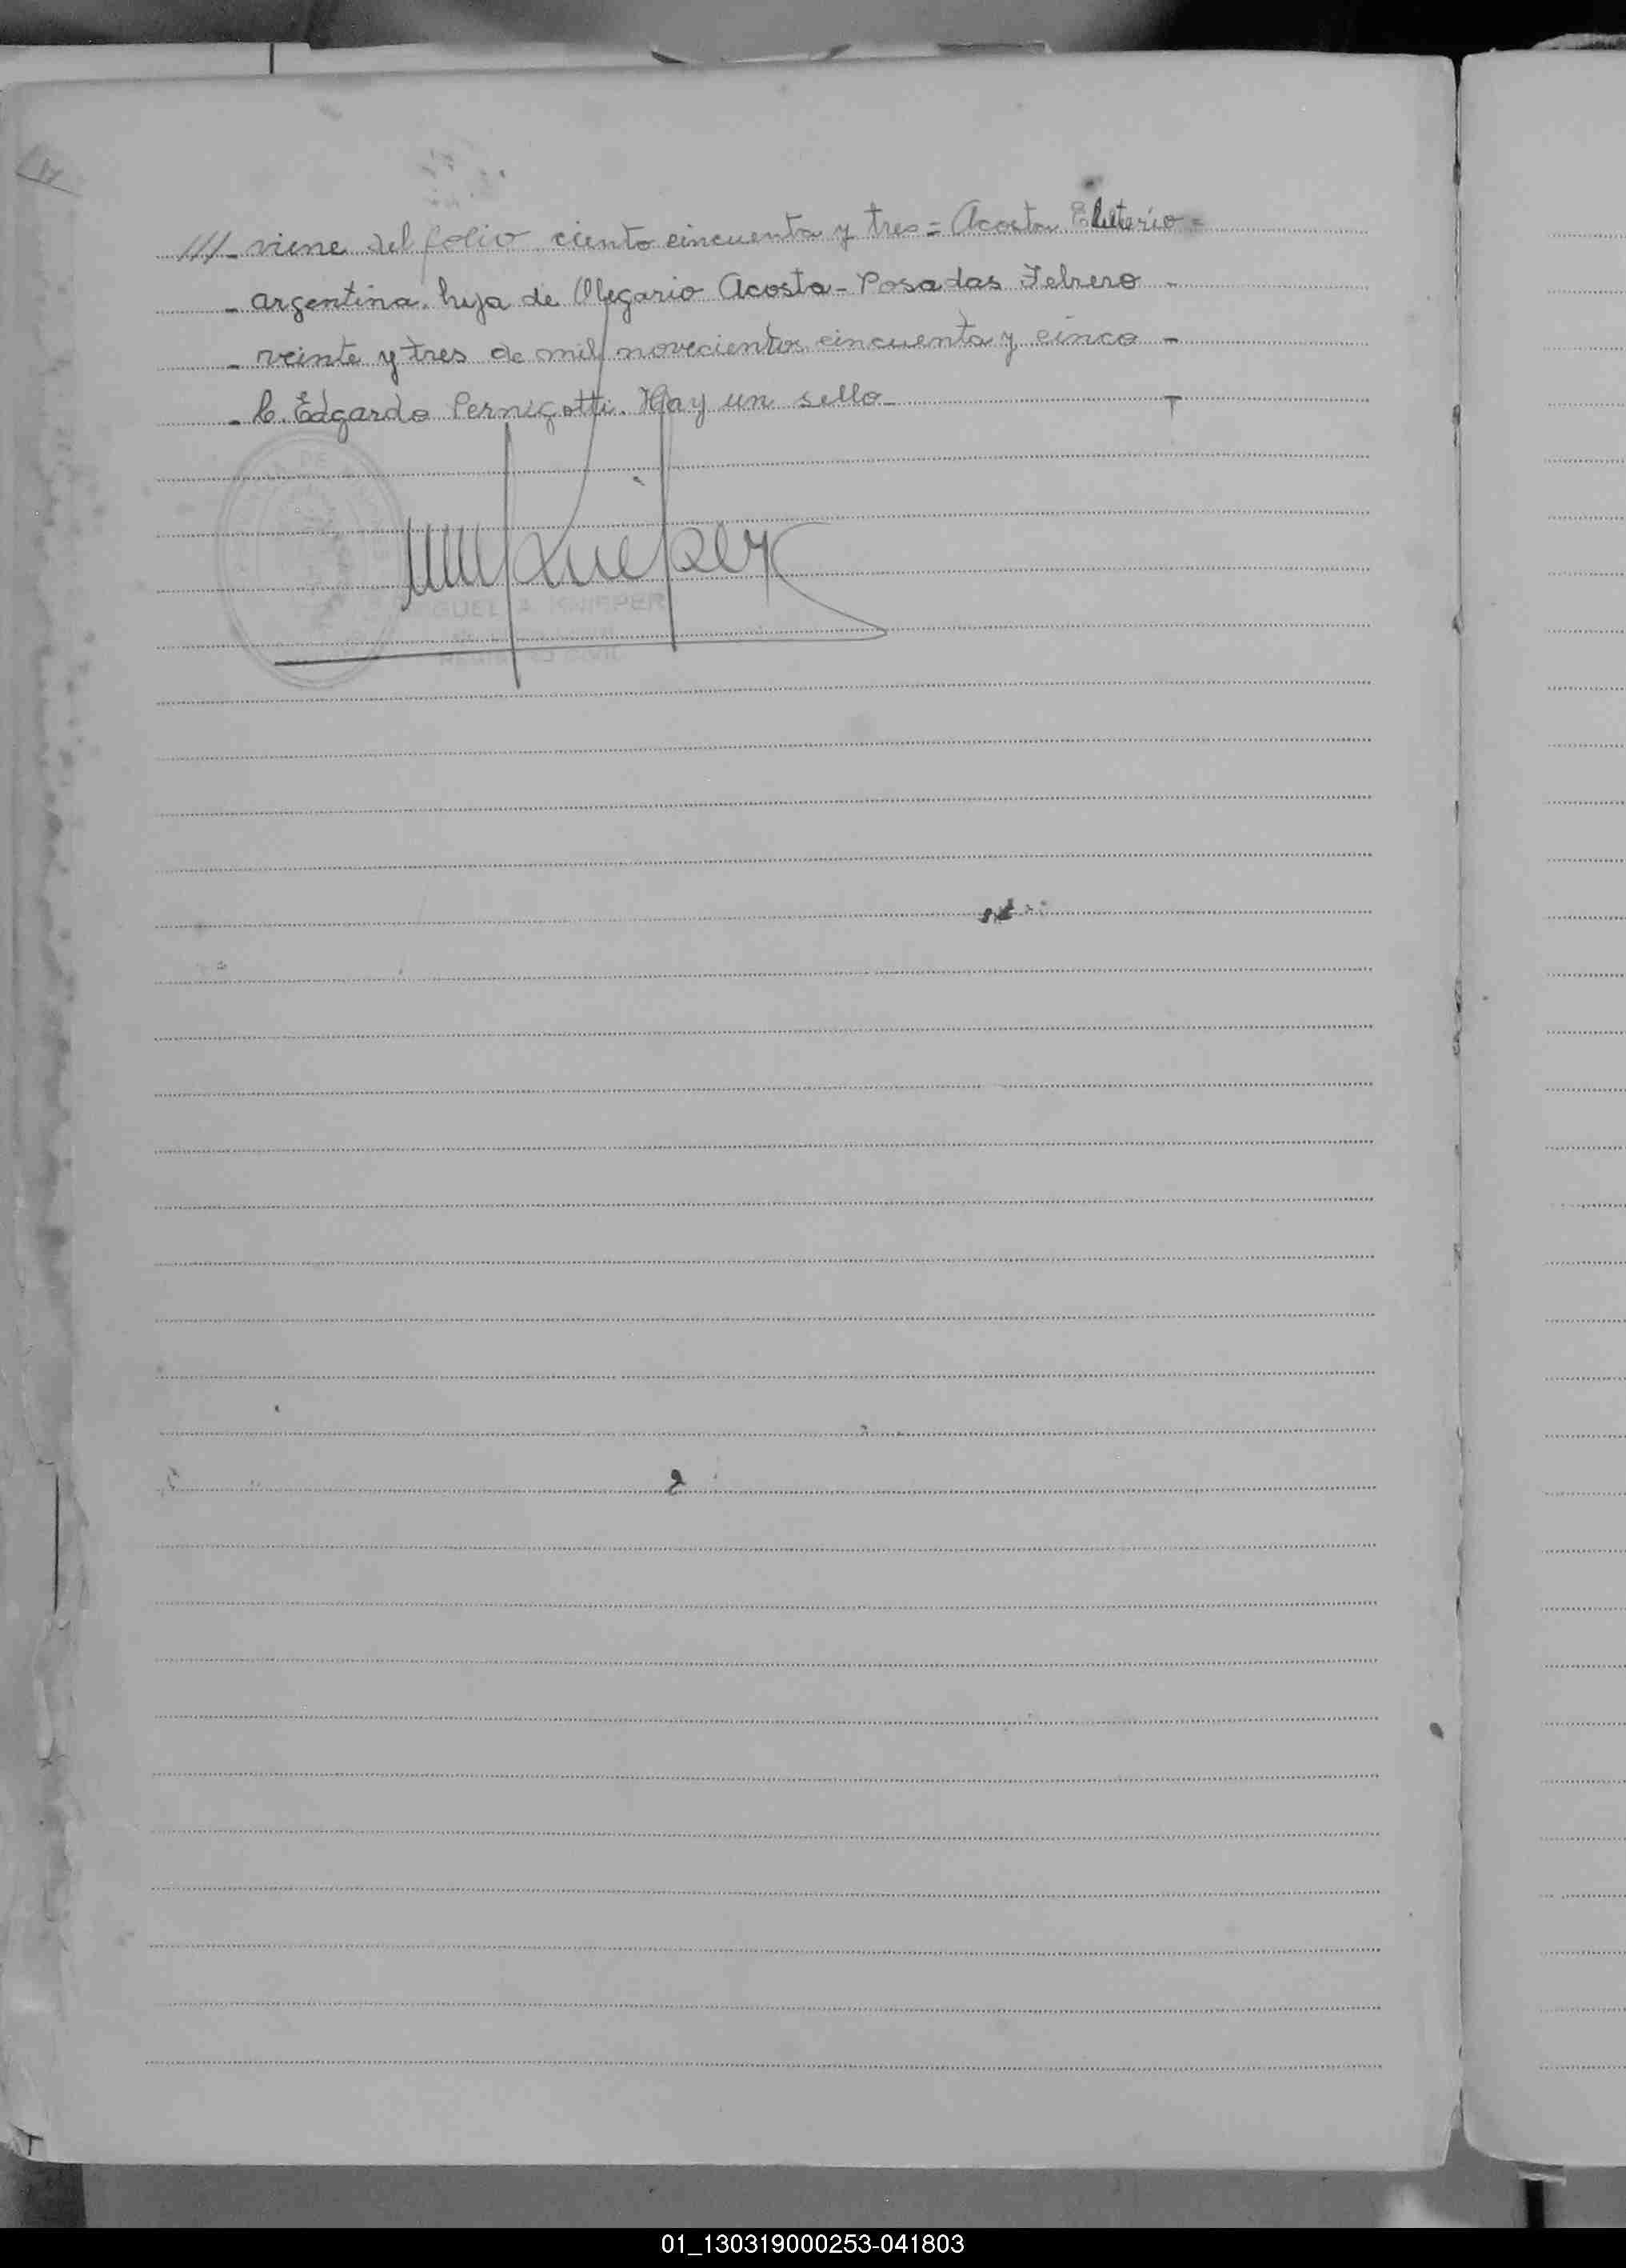 ///- viene del folio ciento cincuenta y tres = Acosta Eleuterio =
- argentina. hija de Olegario Acosta - Posadas Febrero -
- veinte y tres de mil novecientos cincuenta y cinco -
- C. Edgardo Pernigotti. Hay un sello -
DE
MIGUEL A. KNIPPER
REGISTRO CIVIL
01_130319000253-041803